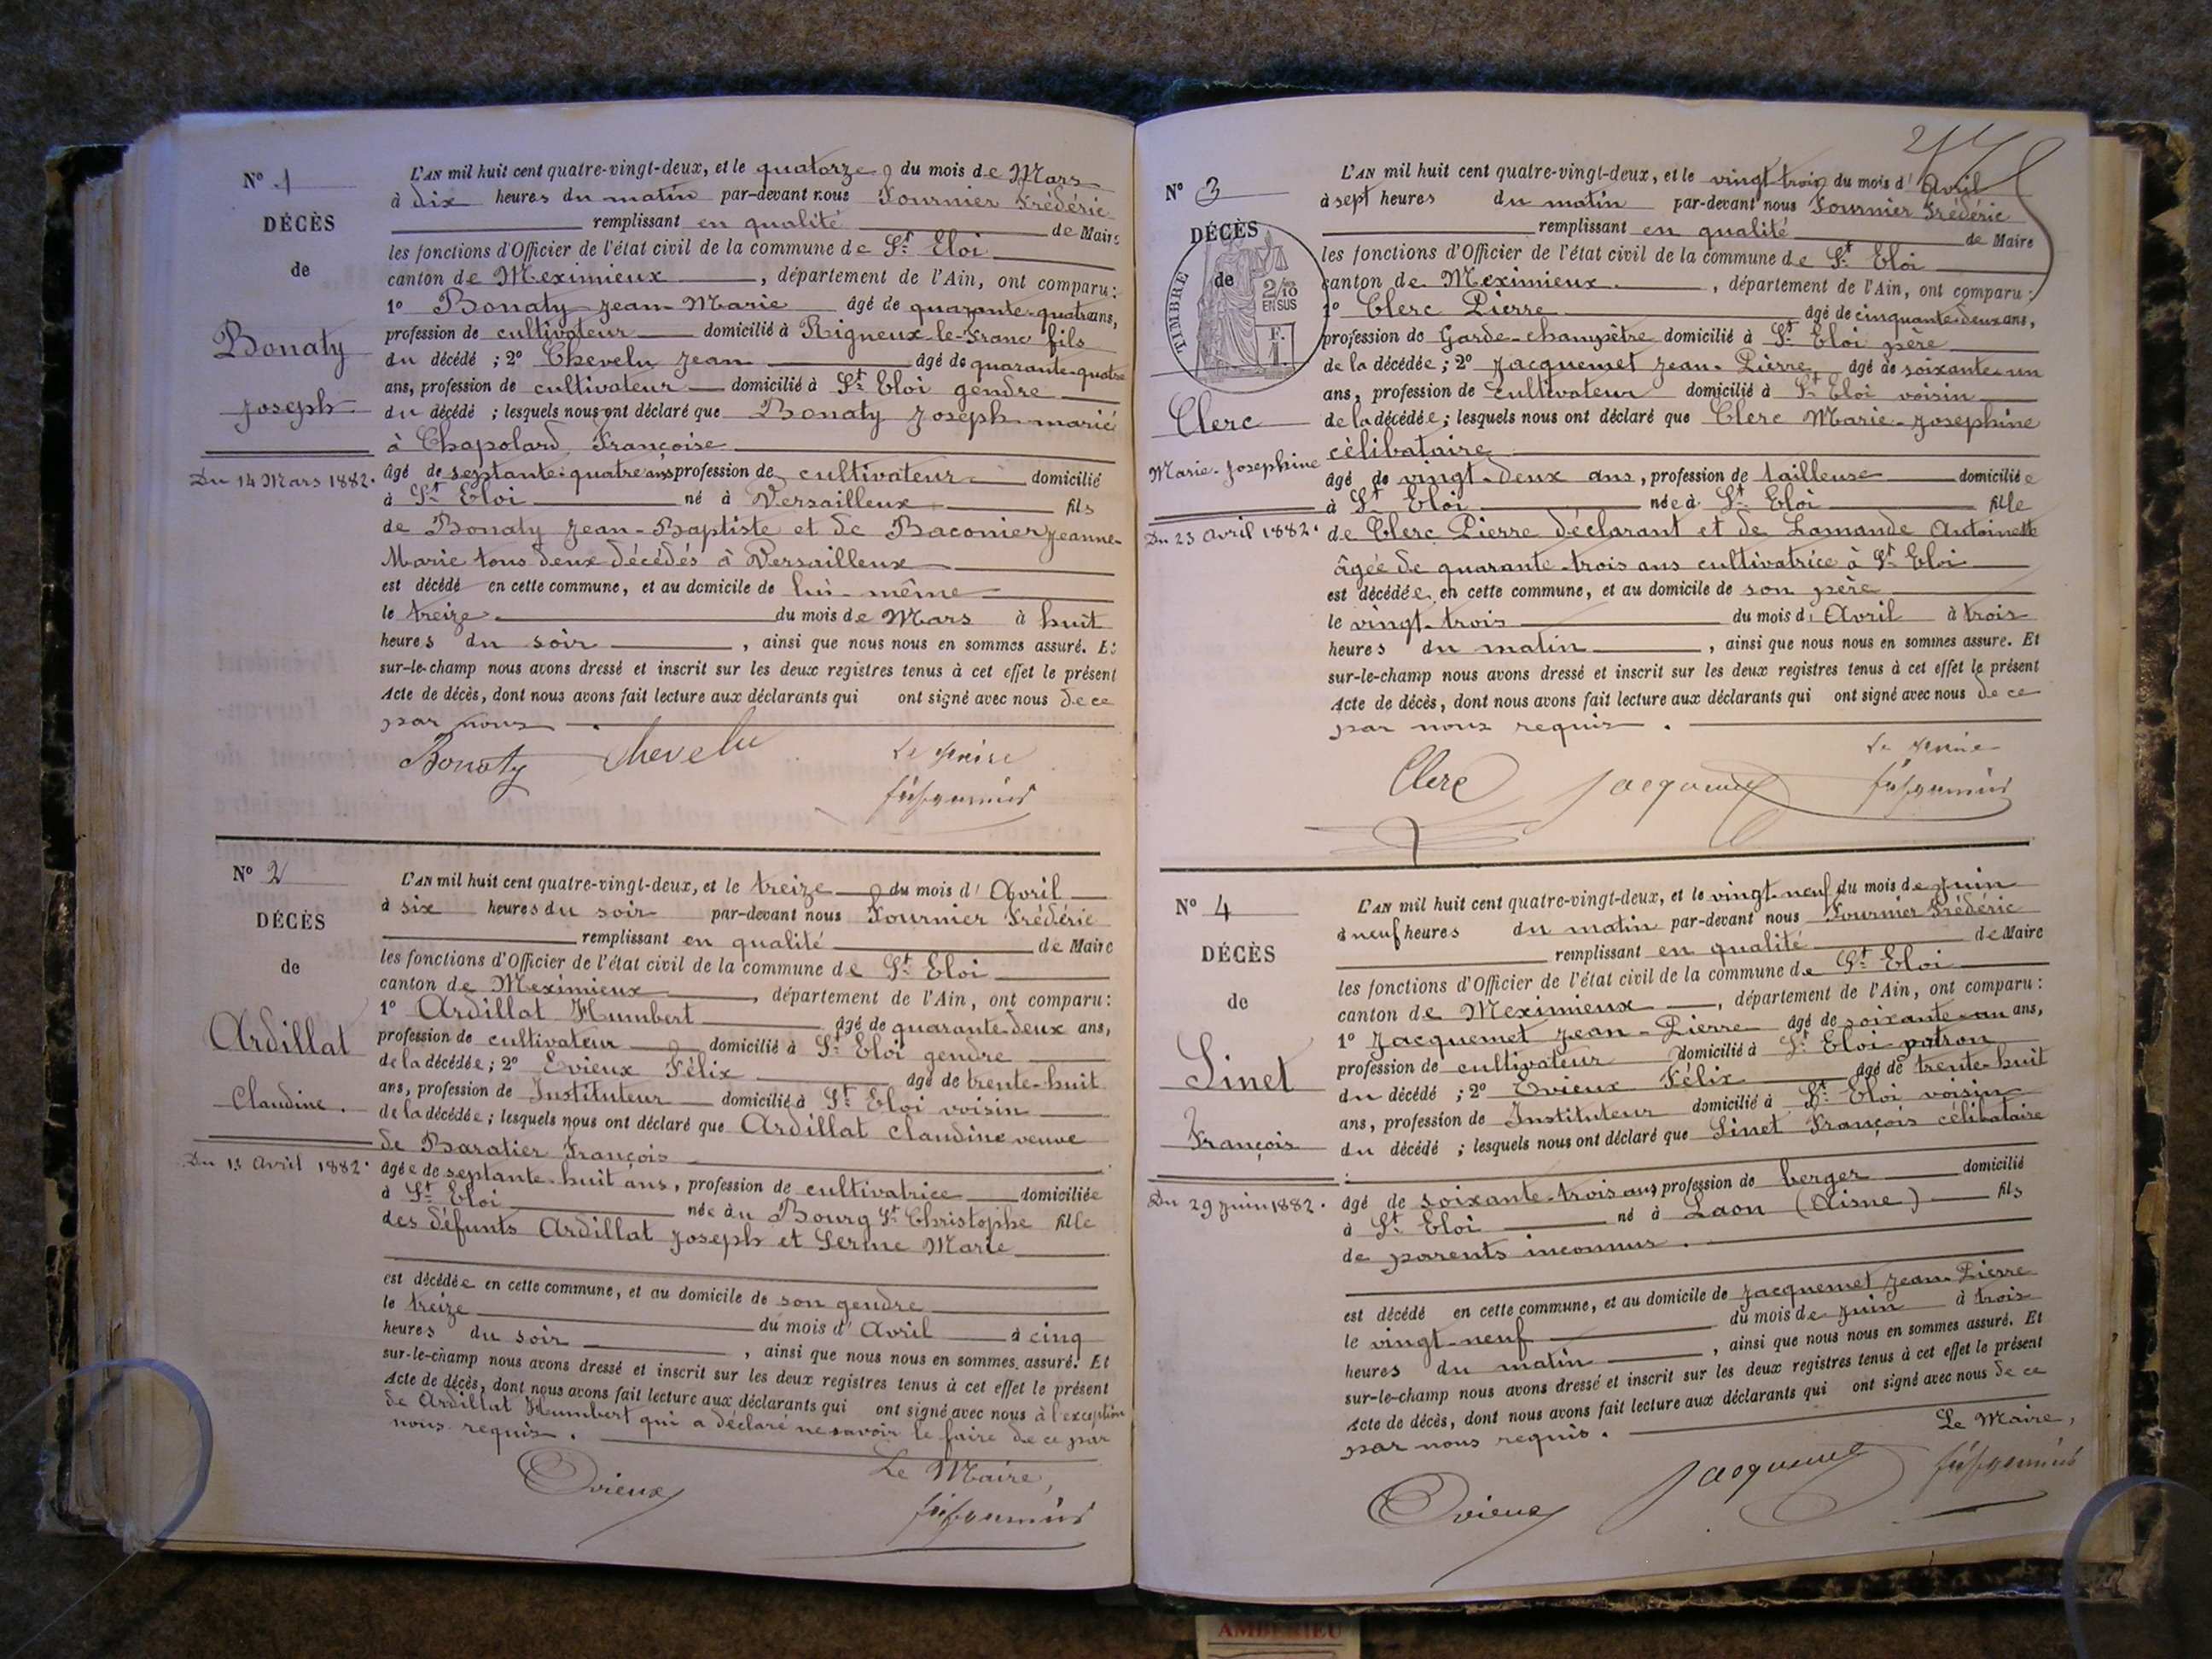 N° 1
DÉCÈS
de
Bonaty
Joseph
Du 14 Mars 1882.
L'AN mil huit cent quatre-vingt-deux, et le quatorze du mois de Mars
à dix heures du matin par-devant nous Fournier Frédéric
remplissant en qualité de Maire
les fonctions d'Officier de l'état civil de la commune de St Eloi
canton de Meximieux, département de l'Ain, ont comparu:
1° Bonaty Jean-Marie âgé de quarante-quatre ans,
profession de cultivateur domicilié à Rigneux-le-Franc fils
du décédé ; 2° Chevelu Jean âgé de quarante-quatre
ans, profession de cultivateur domicilié à St Eloi gendre
du décédé ; lesquels nous ont déclaré que Bonaty Joseph marié
à Chapolard Françoise
âgé de septante-quatre ans profession de cultivateur domicilié
à St Eloi né à Versailleux fils
de Bonaty Jean-Baptiste et de Baconier Jeanne-
Marie tous deux décédés à Versailleux
est décédé en cette commune, et au domicile de lui-même
le treize du mois de Mars à huit
heures du soir, ainsi que nous nous en sommes assuré. Et
sur-le-champ nous avons dressé et inscrit sur les deux registres tenus à cet effet le présent
Acte de décès, dont nous avons fait lecture aux déclarants qui ont signé avec nous de ce
par nous .
Bonaty Chevelu Le Maire
N° 2
DÉCÈS
de
Ardillat
Claudine.
Du 13 Avril 1882.
L'AN mil huit cent quatre-vingt-deux, et le treize du mois d' Avril
à six heures du soir par-devant nous Fournier Frédéric
remplissant en qualité de Maire
les fonctions d'Officier de l'état civil de la commune de St Eloi
canton de Meximieux, département de l'Ain, ont comparu:
1° Ardillat Humbert âgé de quarante-deux ans,
profession de cultivateur domicilié à St Eloi gendre
de la décédée ; 2° Evieux Félix âgé de trente-huit
ans, profession de Instituteur domicilié à St Eloi voisin
de la décédée ; lesquels nous ont déclaré que Ardillat Claudine veuve
de Baratier François
âgée de septante-huit ans, profession de cultivatrice domiciliée
à St Eloi née au Bourg St Christophe fille
des défunts Ardillat Joseph et Marie
est décédée en cette commune, et au domicile de son gendre
le treize du mois d' Avril à cinq
heures du soir, ainsi que nous nous en sommes assuré. Et
sur-le-champ nous avons dressé et inscrit sur les deux registres tenus à cet effet le présent
Acte de décès, dont nous avons fait lecture aux déclarants qui ont signé avec nous à l'exception
de Ardillat Humbert qui a déclaré ne savoir le faire de ce par
nous requis.
Le Maire,
Evieux
N° 3
DÉCÈS
de
TIMBRE
2/10
EN SUS
F.
1
Clerc
Marie-Josephine
Du 23 Avril 1882.
L'AN mil huit cent quatre-vingt-deux, et le vingt-trois du mois d' Avril
à sept heures du matin par-devant nous Fournier Frédéric
remplissant en qualité de Maire
les fonctions d'Officier de l'état civil de la commune de St Eloi
canton de Meximieux, département de l'Ain, ont comparu:
1° Clerc Pierre âgé de cinquante-deux ans,
profession de Garde-champêtre domicilié à St Eloi père
de la décédée ; 2° Jacquemet Jean-Pierre âgé de soixante-un
ans, profession de cultivateur domicilié à St Eloi voisin
de la décédée ; lesquels nous ont déclaré que Clerc Marie-Josephine
célibataire
âgé de vingt-deux ans, profession de tailleuse domiciliée
à St Eloi née à St Eloi fille
de Clerc Pierre déclarant et de Lamande Antoinette
âgée de quarante-trois ans cultivatrice à St Eloi
est décédée en cette commune, et au domicile de son père
le vingt-trois du mois d' Avril à trois
heures du matin, ainsi que nous nous en sommes assuré. Et
sur-le-champ nous avons dressé et inscrit sur les deux registres tenus à cet effet le présent
Acte de décès, dont nous avons fait lecture aux déclarants qui ont signé avec nous de ce
par nous requis.
Clerc Jacquemet Le Maire
N° 4
DÉCÈS
de
Sinet
François
Du 29 Juin 1882.
L'AN mil huit cent quatre-vingt-deux, et le vingt-neuf du mois de Juin
à neuf heures du matin par-devant nous Fournier Frédéric
remplissant en qualité de Maire
les fonctions d'Officier de l'état civil de la commune de St Eloi
canton de Meximieux, département de l'Ain, ont comparu:
1° Jacquemet Jean-Pierre âgé de soixante-un ans,
profession de cultivateur domicilié à St Eloi patron
du décédé ; 2° Evieux Félix âgé de trente-huit
ans, profession de Instituteur domicilié à St Eloi voisin
du décédé ; lesquels nous ont déclaré que Sinet François célibataire
âgé de soixante-trois ans profession de berger domicilié
à St Eloi né à Laon (Aisne) fils
de parents inconnus.
est décédé en cette commune, et au domicile de Jacquemet Jean-Pierre
le vingt-neuf du mois de Juin à trois
heures du matin, ainsi que nous nous en sommes assuré. Et
sur-le-champ nous avons dressé et inscrit sur les deux registres tenus à cet effet le présent
Acte de décès, dont nous avons fait lecture aux déclarants qui ont signé avec nous de ce
par nous requis.
Le Maire,
Evieux Jacquemet
AMBERIEU